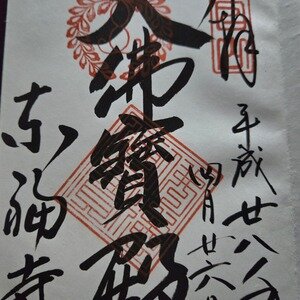 拝
平成廿八年
四月廿六日
大佛寶殿
東福寺